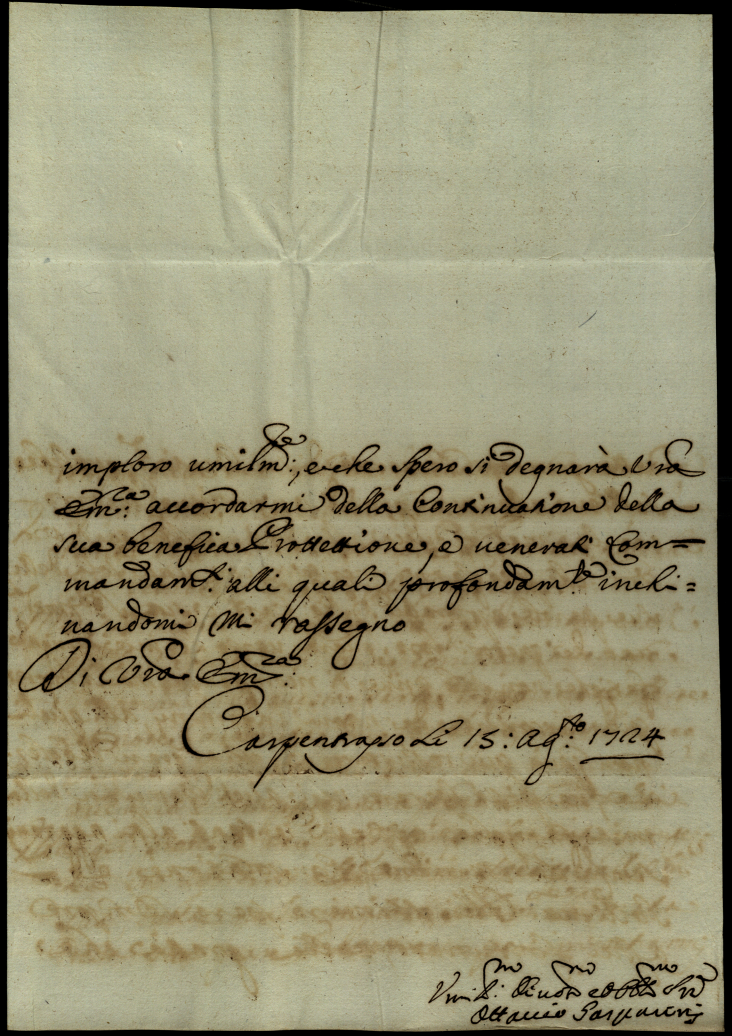 imploro umilm.te, e che spero si degnarà Vra
Em.za accordarmi della Continuatione della
sua benefica Prottettione, e venerati Com=
mandam.ti alli quali profondam.te inchi=
nandomi mi rassegno
Di Vra Em.za
Carpentrasso li 15: Ag.to 1724
Umil.mo Divot.mo et Obb.mo Sre
Ottavio Gasparini